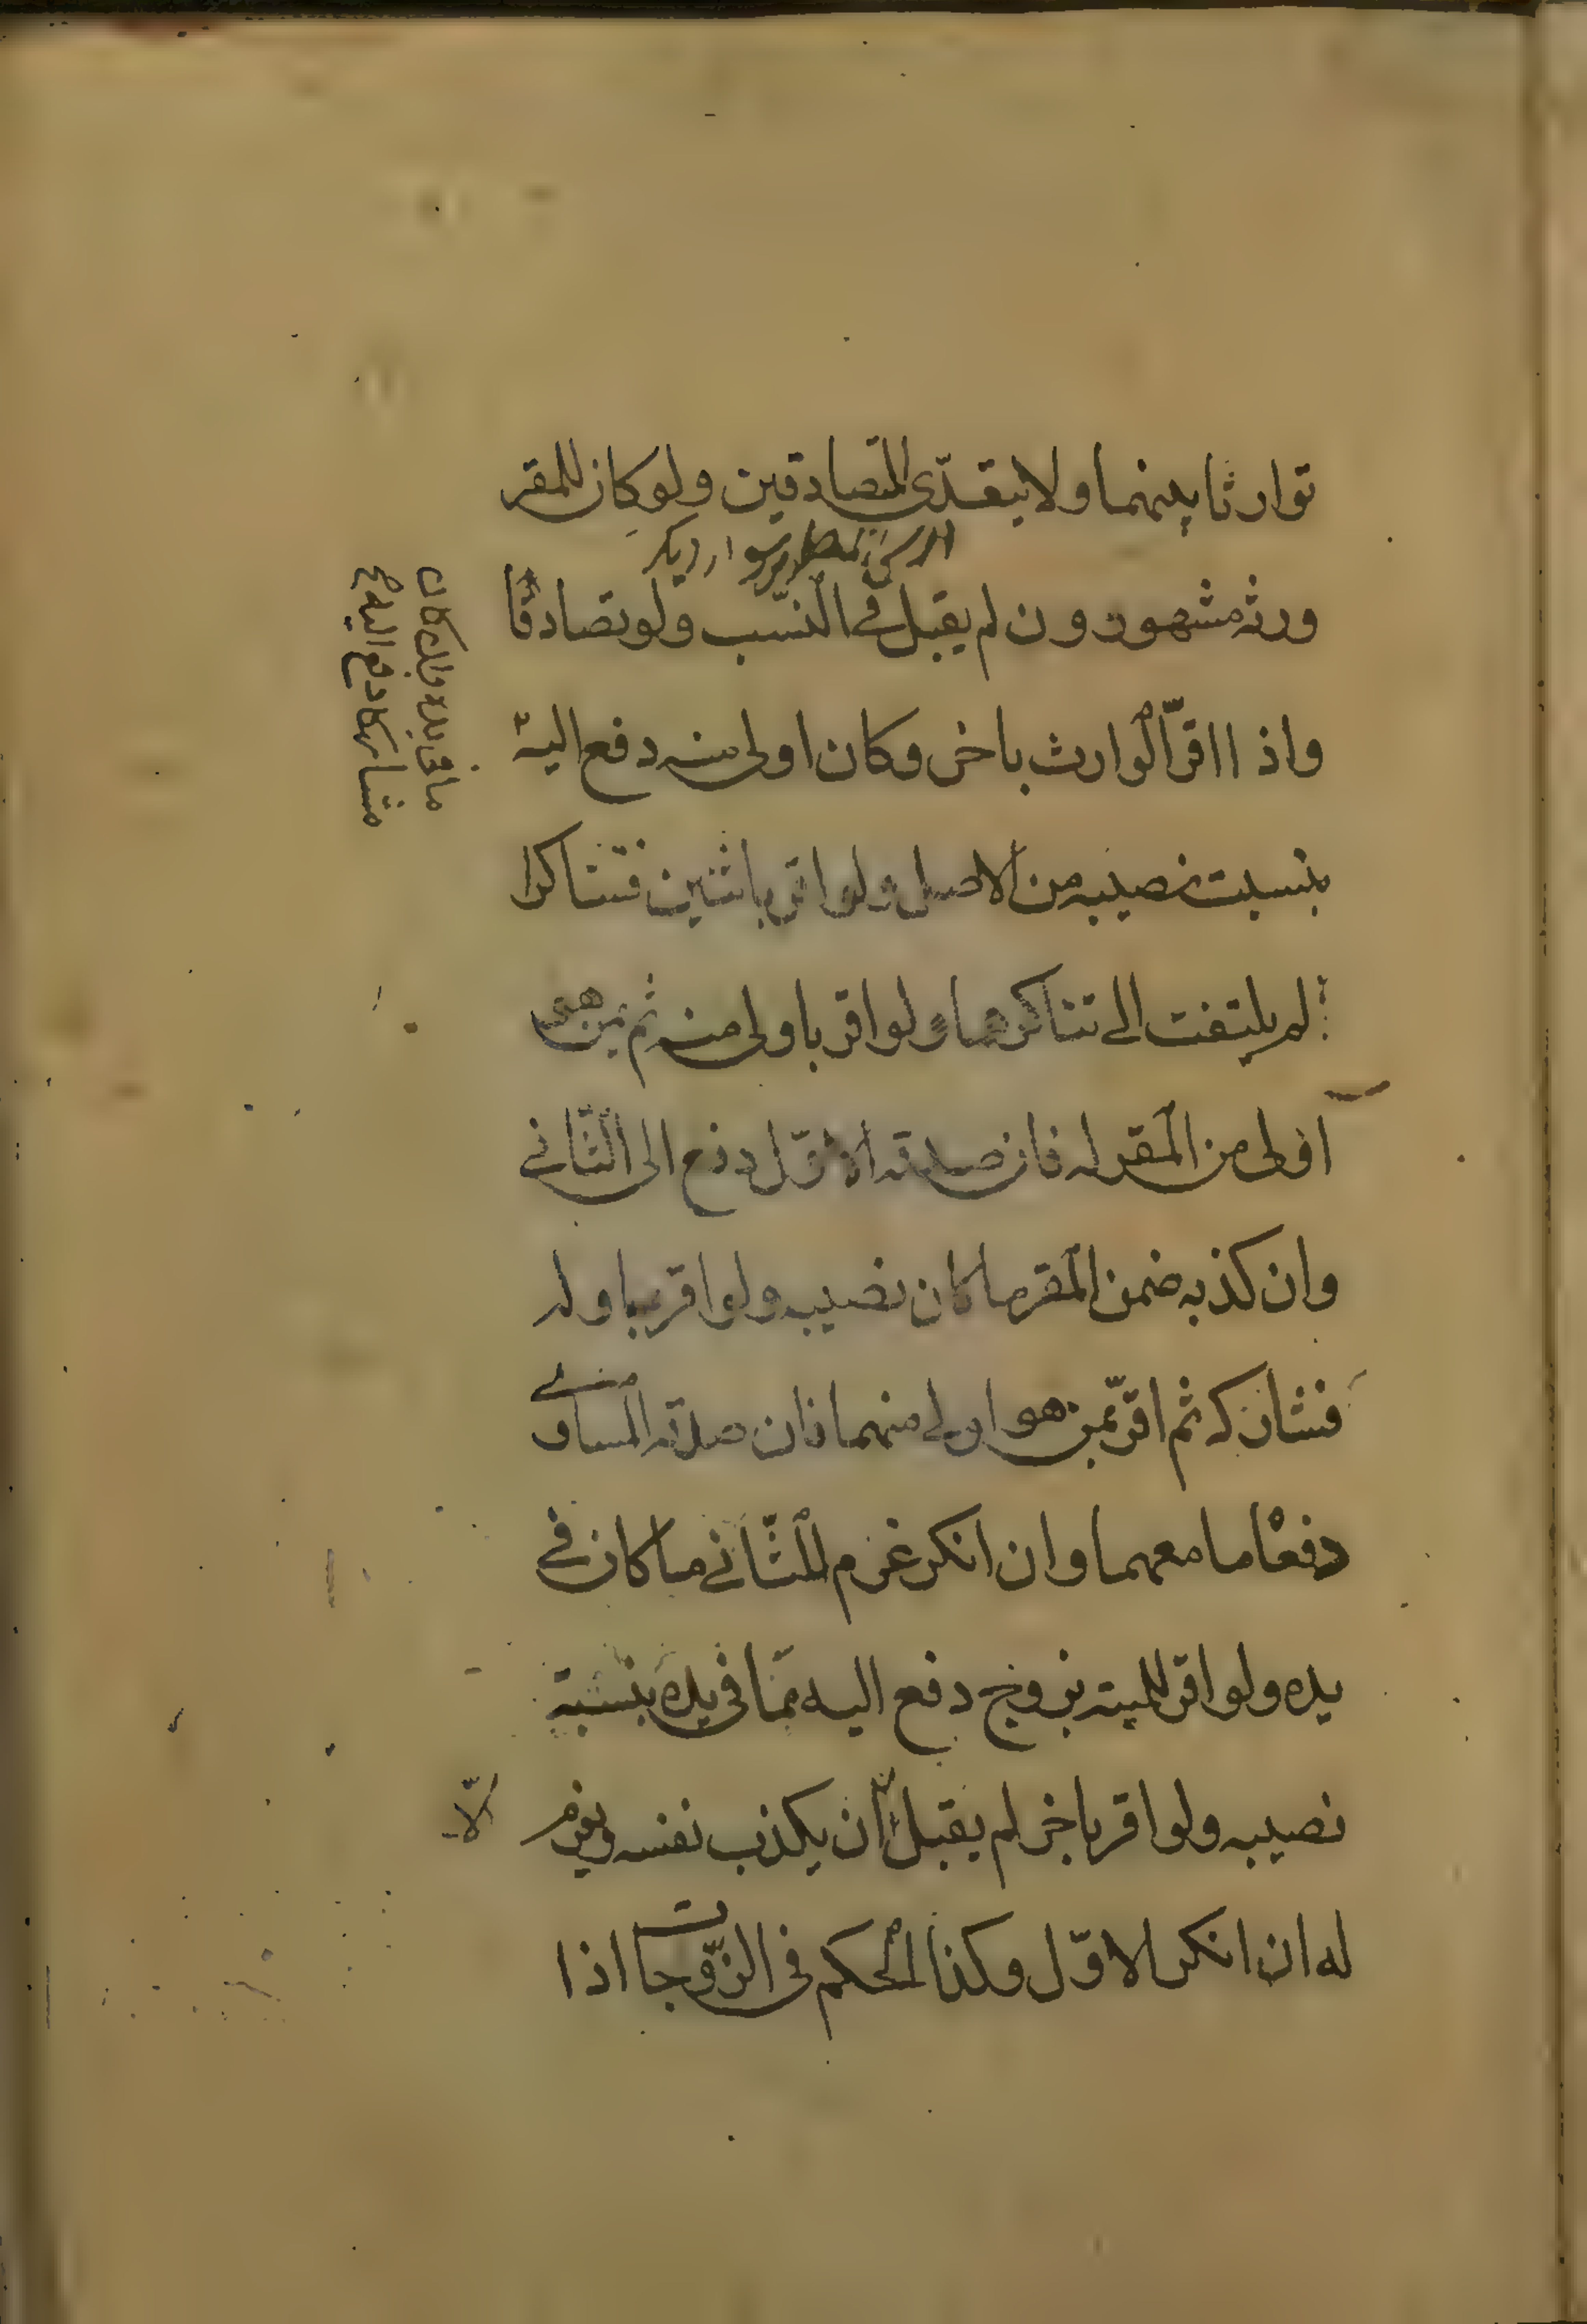 توارثا بينهما ولا يتعدّى المتصادقين ولو كان للمقر
ورثه مشهورون لم يقبل فى النّسب ولو تصادقا
واذا اقرّ الوارث باخر وكان اولى منه دفع اليه
ما فى يده وان كان
مشاركا دفع اليه
بنسبت نصيبه من الاصل ولو اقر باثنين فتناكرا
لم يلتفت الى تناكرهما ولو اقر باولى منه ثم بمن هو
اولى من المقر له فان صدقه الاوّل دفع الى الثّانى
وان كذبه ضمن المقر ما كان نصيبه ولو اقر بمساو له
فشاركه ثم اقرّ بمن هو اولى منهما فان صدقه المساوى
دفعا ما معهما وان انكر غرم للثّانى ما كان فى
يده ولو اقر للميته بزوج دفع اليه ممّا فى يده بنسبة
نصيبه ولو اقر باخر لم يقبل الّا ان يكذب نفسه ويغرم
له ان انكر الاوّل وكذا الحكم فى الزّوجات اذا